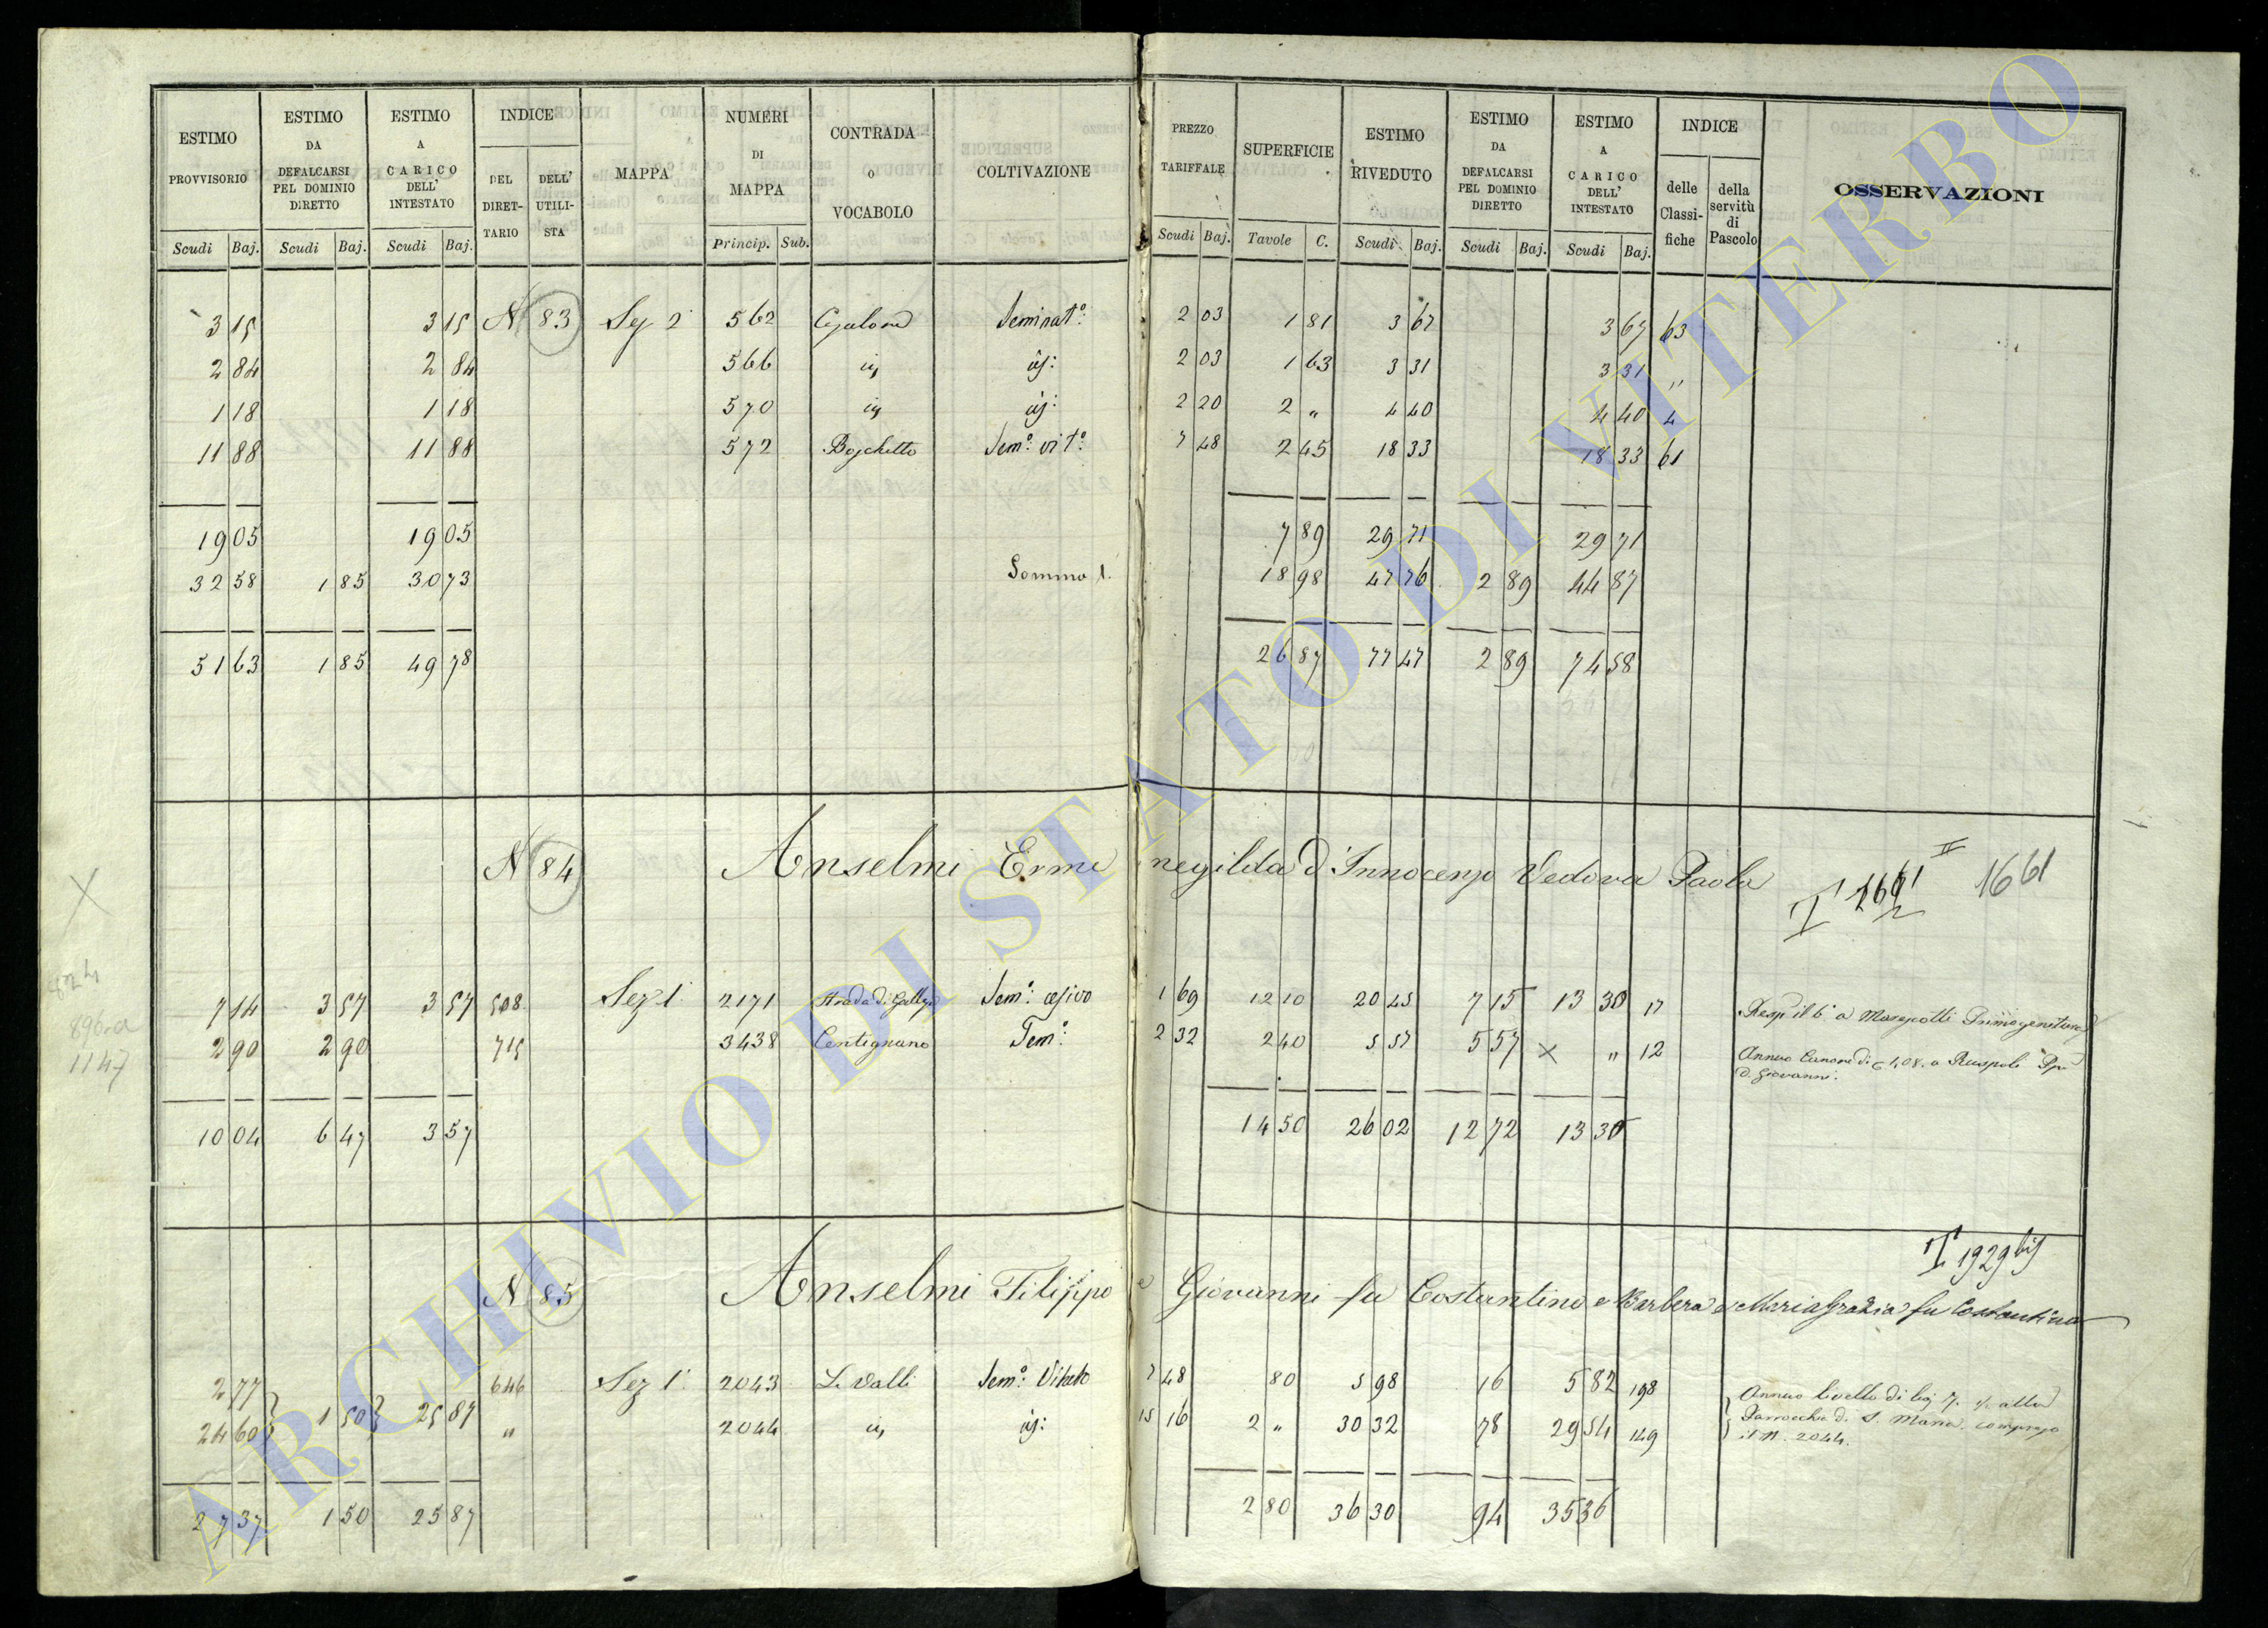 ESTIMO PROVVISORIO ESTIMO DA DEFALCARSI PEL DOMINIO DIRETTO ESTIMO A CARICO DELL' INTESTATO INDICE DEL DIRETTARIO DELL' UTILISTA MAPPA NUMERI DI MAPPA CONTRADA O VOCABOLO COLTIVAZIONE PREZZO TARIFFALE SUPERFICIE ESTIMO RIVEDUTO ESTIMO DA DEFALCARSI PEL DOMINIO DIRETTO ESTIMO A CARICO DELL' INTESTATO INDICE delle Classifiche della servitù di Pascolo OSSERVAZIONI
Scudi Baj. Scudi Baj. Scudi Baj. Princip. Sub. Scudi Baj. Tavole C. Scudi Baj. Scudi Baj. Scudi Baj.
3 15 3 15 N 83 Sez 2 562 Seminat.o 2 03 1 81 3 67 3 67 63
2 84 2 84 566 2 03 1 63 3 31 3 31 "
1 18 1 18 570 2 20 2 " 4 40 4 40 4
11 88 11 88 572 Boschetto Sem.o vit.o 7 48 2 45 18 33 18 33 61
19 05 19 05 7 89 29 71 29 71
32 58 1 85 30 73 Somma 18 98 47 76 2 89 44 87
51 63 1 85 49 78 26 87 77 47 2 89 74 58
N 84 Anselmi Ermenegilda d'Innocenzo Vedova Paola 1661
7 14 3 57 3 57 508 Sez 1 2171 Strada di Sem.o 1 69 12 10 20 45 7 15 13 30 17
2 90 2 90 715 3438 Centignano Sem.o 2 32 2 40 5 57 5 57 × " 12 Annuo Canone di 1,08. a Ruspoli
D. Giovanni.
1147
10 04 6 47 3 57 14 50 26 02 12 72 13 30
1929 bis
N 85 Anselmi Filippo e Giovanni fu Costantino e Barbera e Maria Grazia fu Costantino
2 77 646 Sez 1 2043 Le Valli Sem.o Vitato 7 48 80 5 98 16 5 82 198 Annuo livello di baj 7. alla
24 60 1 50 25 87 " 2044 15 16 2 " 30 32 78 29 54 149 Parrocchia di S. Maria compreso
il N. 2044.
27 37 1 50 25 87 2 80 36 30 94 35 36
ARCHIVIO DI STATO DI VITERBO